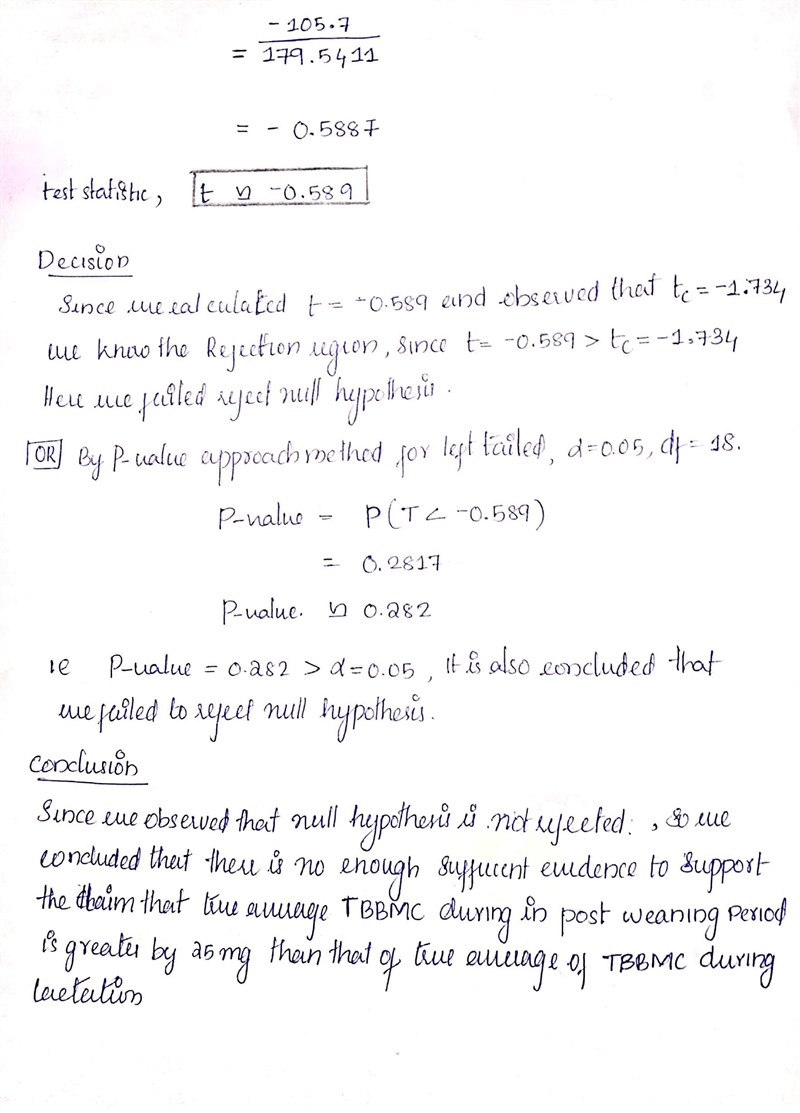 - 105.7
= 179.5411
= - 0.5887
test statistic, t ≈ -0.589
Decision
Since we calculated t = -0.589 and observed that tc = -1.734
we know the Rejection region, Since t = -0.589 > tc = -1.734
Here we failed reject null hypothesis.
OR By P-value approach method for left tailed, α=0.05, df = 18.
P-value = P(T < -0.589)
= 0.2817
P-value. ≈ 0.282
ie P-value = 0.282 > α=0.05, It is also concluded that
we failed to reject null hypothesis.
Conclusion
Since we observed that null hypothesis is not rejected. , so we
concluded that there is no enough sufficient evidence to support
the claim that true average TBBMC during in post weaning period
is greater by 25 mg than that of true average of TBBMC during
lactation